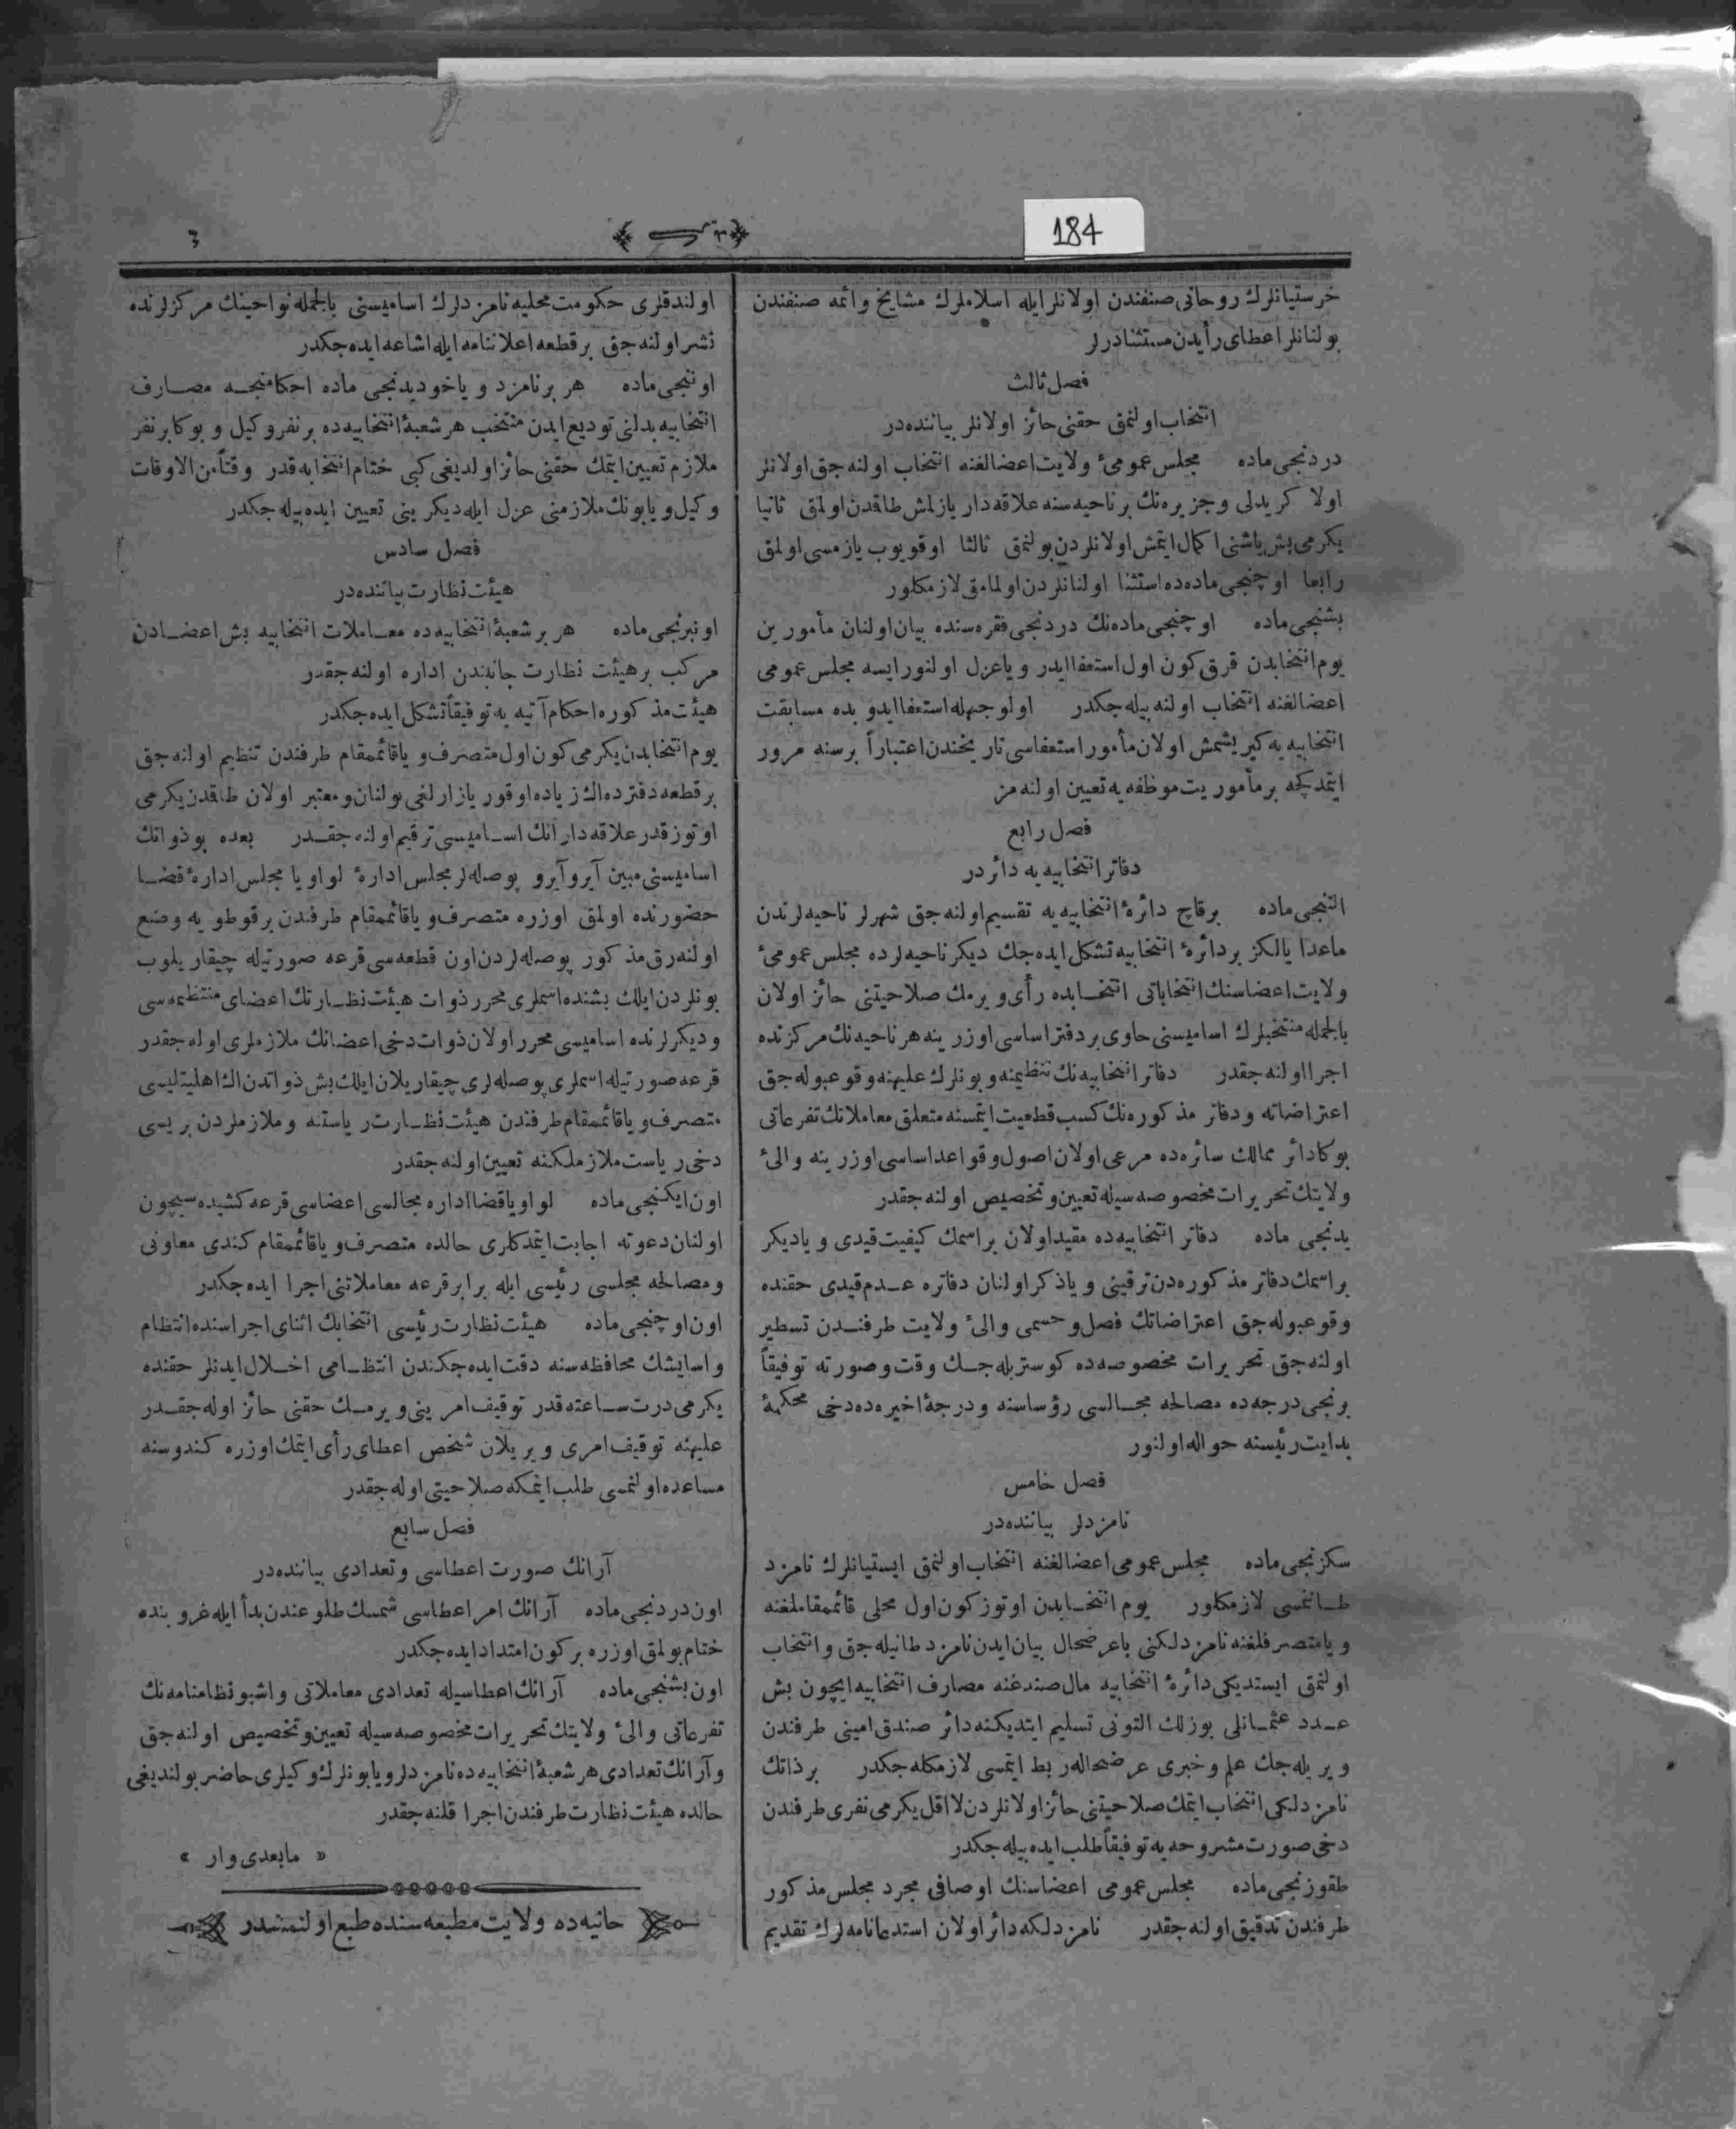 184
٣
خرستيانلرك روحانى صنفندن اولانلر ايله اسلاملرك مشايخ وائمه صنفندن
بولنانلر اعطاى رأيدن مستثنادرلر
فصل ثالث
انتخاب اولنمق حقنى حائز اولانلر بياننده‌در
دردنجى ماده مجلس عمومئ ولايت اعضالغنه انتخاب اولنه‌جق اولانلر
اولا كريدلى وجزيره‌نك برناحيه‌سنه علاقه‌دار يازلمش طاقدن اولمق ثانيا
يكرمى بش ياشنى اكمال ايتمش اولانلردن بولنمق ثالثا اوقويوب يازمسى اولمق
رابعا اوچنجى ماده‌ده استثنا اولنانلردن اولمامق لازمكلور
بشنجى ماده اوچنجى ماده‌نك دردنجى فقره‌سنده بيان اولنان مأمورين
يوم انتخابدن قرق كون اول استعفا ايدر وياعزل اولنور ايسه مجلس عمومى
اعضالغنه انتخاب اولنه‌بيله‌جكدر اولوجهله استعفا ايدوبده مسابقت
انتخابيه‌يه كيريشمش اولان مأمور استعفاسى تاريخندن اعتباراً برسنه مرور
ايتمدكجه برمأموريت موظفه‌يه تعيين اولنه‌مز
فصل رابع
دفاتر انتخابيه‌يه دائردر
التنجى ماده برقاچ دائرۀ انتخابيه‌يه تقسيم اولنه‌جق شهرلر ناحيه‌لرندن
ماعدا يالكز بردائرۀ انتخابيه تشكل ايده‌جك ديكر ناحيه‌لرده مجلس عمومئ
ولايت اعضاسنك انتخاباتى انتخـابده رأى ويرمك صلاحيتنى حائز اولان
بالجمله منتخبلرك اساميسنى حاوى بردفتر اساسى اوزرينه هرناحيه‌نك مركزنده
اجرا اولنه‌جقدر دفاتر انتخابيه‌نك تنظيمنه وبونلرك عليهنه وقوعبوله‌جق
اعتراضاته ودفاتر مذكوره‌نك كسب قطعيت ايتمسنه متعلق معاملاتك تفرعاتى
بوكا دائر ممالك سائره‌ده مرعى اولان اصول وقواعد اساسى اوزرينه والئ
ولايتك تحريرات مخصوصه‌سيله تعيين وتخصيص اولنه‌جقدر
يدنجى ماده دفاتر انتخابيه‌ده مقيد اولان براسمك كيفيت قيدى وياديكر
براسمك دفاتر مذكوره‌دن ترقينى وياذكر اولنان دفاتره عـدم قيدى حقنده
وقوعبوله‌جق اعتراضاتك فصل وحسمى والئ ولايت طرفنـدن تسطير
اولنه‌جق تحريرات مخصوصه‌ده كوستريله‌جـك وقت وصورته توفيقاً
برنجى درجه‌ده مصالحه مجـالسى رؤساسنه ودرجۀ اخيره‌ده دخى محكمۀ
بدايت رئيسنه حواله اولنور
فصل خامس
نامزدلر بياننده‌در
سكزنجى ماده مجلس عمومى اعضالغنه انتخاب اولنمق ايستيانلرك نامزد
طـانمسى لازمكلور يوم انتخـابدن اوتوز كون اول محلى قائممقاملغنه
ويامتصرفلغنه نامزدلكنى باعرضحال بيان ايدن نامزد طانيله‌جق وانتخاب
اولنمق ايستديكى دائرۀ انتخابيه مال صندغنه مصارف انتخابيه ايچون بش
عـدد عثمـانلى يوزلك التونى تسليم ايتديكنه دائر صندق امينى طرفندن
ويريله‌جك علم وخبرى عرضحاله ربط ايتمسى لازمكله‌جكدر برذاتك
نامزدلكى انتخاب ايتمك صلاحيتنى حائز اولانلردن لااقل يكرمى نفرى طرفندن
دخى صورت مشروحه‌يه توفيقاً طلب ايده‌بيله‌جكدر
طقوزنجى ماده مجلس عمومى اعضاسنك اوصافى مجرد مجلس مذكور
طرفندن تدقيق اولنه‌جقدر نامزدلكه دائر اولان استدعانامه‌لرك تقديم
اولندقلرى حكومت محليه نامزدلرك اساميسنى بالجمله نواحينك مركزلرنده
نشر اولنه‌جق برقطعه اعلاننامه ايله اشاعه ايده‌جكدر
اوننجى ماده هر برنامزد وياخود يدنجى ماده احكامنجـه مصـارف
انتخابيه بدلنى توديع ايدن منتخب هرشعبۀ انتخابيه‌ده برنفر وكيل وبوكا برنفر
ملازم تعيين ايتمك حقنى حائز اولديغى كبى ختام انتخابه‌قدر وقتاً من الاوقات
وكيل ويابونك ملازمنى عزل ايله ديكرينى تعيين ايده‌بيله‌جكدر
فصل سادس
هيئت نظارت بياننده‌در
اونبرنجى ماده هر برشعبۀ انتخابيه‌ده معـاملات انتخابيه بش اعضـادن
مركب برهيئت نظارت جانبندن اداره اولنه‌جقدر
هيئت مذكوره احكام آتيه‌يه توفيقاً تشكل ايده‌جكدر
يوم انتخابدن يكرمى كون اول متصرف وياقائممقام طرفندن تنظيم اولنه‌جق
برقطعه دفترده الك زياده اوقور يازارلغى بولنان ومعتبر اولان طاقدن يكرمى
اوتوز قدر علاقه‌دارانك اسـاميسى ترقيم اولنه‌جقـدر بعده بوذواتك
اساميسنى مبين آيرو آيرو پوصله‌لر مجلس ادارۀ لوا ويا مجلس ادارۀ قضـا
حضورنده اولمق اوزره متصرف وياقائممقام طرفندن برقوطويه وضع
اولنه‌رق مذكور پوصله‌لردن اون قطعه‌سى قرعه صورتيله چيقاريلوب
بونلردن ايلك بشنده اسملرى محرر ذوات هيئت نظـارتك اعضاى منتظمه‌سى
وديكرلرنده اساميسى محرر اولان ذوات دخى اعضانك ملازملرى اوله‌جقدر
قرعه صورتيله اسملرى پوصله‌لرى چيقاريلان ايلك بش ذواتدن الك اهليتليسى
متصرف وياقائممقام طرفندن هيئت نظـارت رياستنه وملازملردن بريسى
دخى رياست ملازملكنه تعيين اولنه‌جقدر
اون ايكنجى ماده لوا وياقضا اداره مجالسى اعضاسى قرعه كشيده‌سيچون
اولنان دعوته اجابت ايتمدكلرى حالده متصرف وياقائممقام كندى معاونى
ومصالحه مجلسى رئيسى ايله برابر قرعه معاملاتنى اجرا ايده‌جكدر
اون اوچنجى ماده هيئت نظارت رئيسى انتخابك اثناى اجراسنده انتظام
واسايشك محافظه‌سنه دقت ايده‌جكندن انتظـامى اخـلال ايدنلر حقنده
يكرمى درت سـاعته قدر توقيف امرينى ويرمـك حقنى حائز اوله‌جقـدر
عليهنه توقيف امرى ويريلان شخص اعطاى رأى ايتمك اوزره كندوسنه
مساعده اولنمسى طلب ايتمكه صلاحيتى اوله‌جقدر
فصل سابع
آرانك صورت اعطاسى وتعدادى بياننده‌در
اون دردنجى ماده آرانك امر اعطاسى شمسك طلوعندن بدأ ايله غروبنده
ختام بولمق اوزره بركون امتداد ايده‌جكدر
اون بشنجى ماده آرانك اعطاسيله تعدادى معاملاتى واشبو نظامنامه‌نك
تفرعاتى والئ ولايتك تحريرات مخصوصه‌سيله تعيين وتخصيص اولنه‌جق
وآرانك تعدادى هرشعبۀ انتخابيه‌ده نامزدلر ويابونلرك وكيلرى حاضر بولنديغى
حالده هيئت نظارت طرفندن اجرا قلنه‌جقدر
« مابعدى وار »
حانيه‌ده ولايت مطبعه‌سنده طبع اولنمشدر